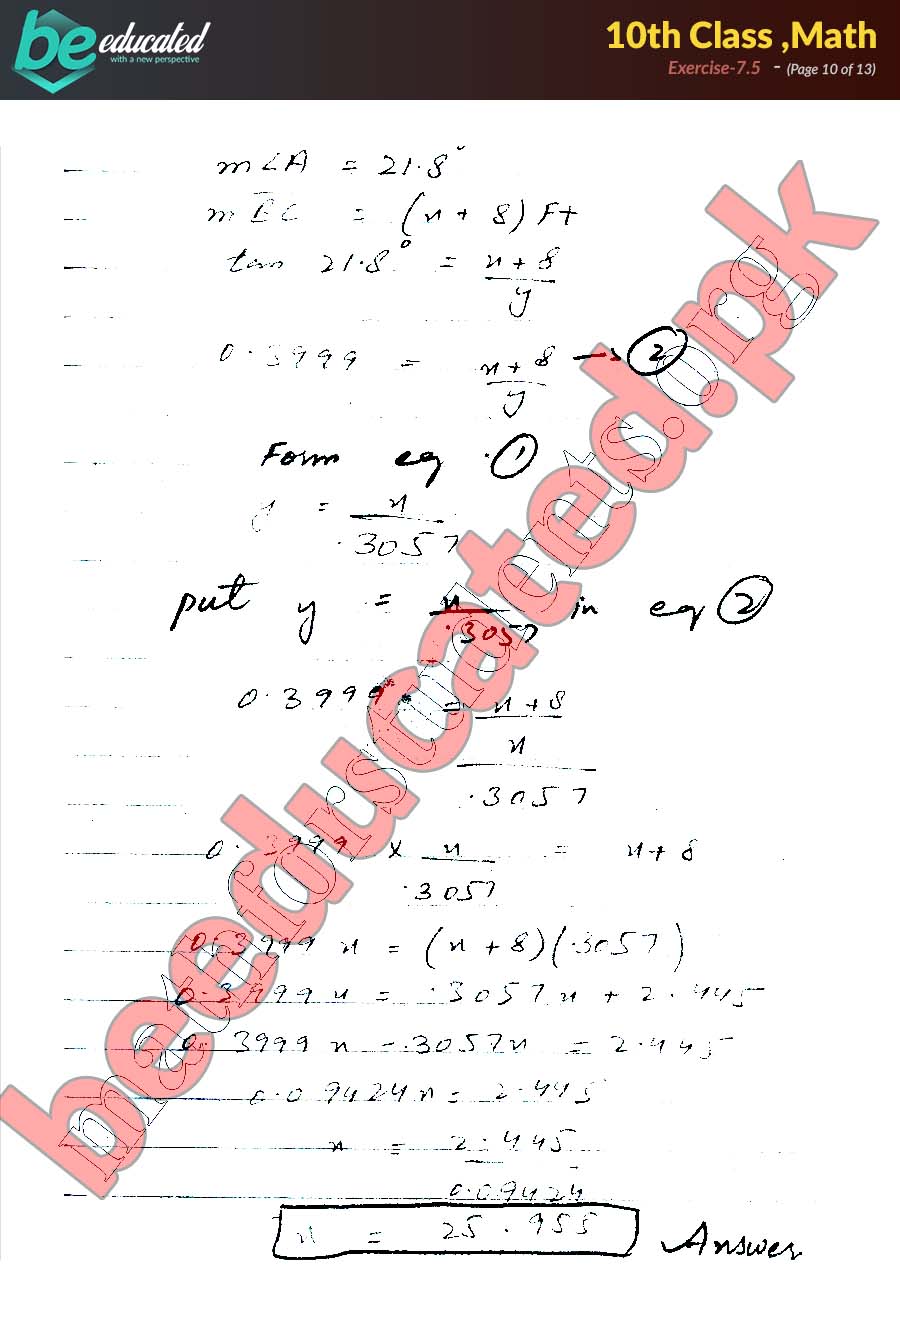 be educated
with a new perspective
10th Class ,Math
Exercise-7.5 - (Page 10 of 13)
m∠A = 21.8°
m BC = (x + 8) Ft
tan 21.8° = x + 8
y
0.3999 = x + 8 → ②
y
Form eq ①
y = x
.3057
put y = x in eq ②
.3057
0.3999 = x + 8
x
.3057
0.3999 × x = x + 8
.3057
0.3999 x = (x + 8)(.3057)
0.3999 x = .3057 x + 2.445
0.3999 x - .3057 x = 2.445
0.09424 x = 2.445
x = 2.445
0.09424
x = 25.955 Answer
beeducated.pk